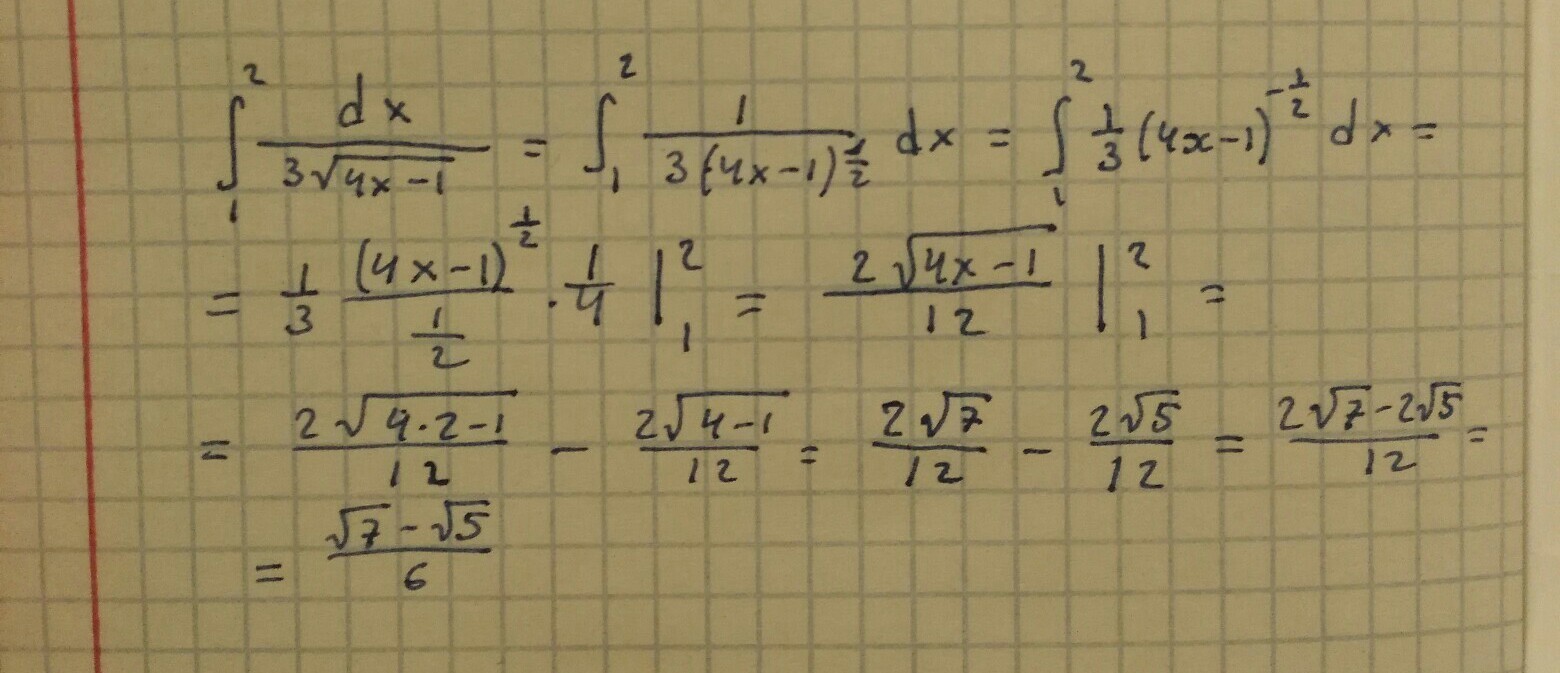 ∫₁² dx/(3√(4x-1)) = ∫₁² 1/(3(4x-1)^(1/2)) dx = ∫₁² 1/3 (4x-1)^(-1/2) dx =
= 1/3 (4x-1)^(1/2)/(1/2) · 1/4 |₁² = 2√(4x-1)/12 |₁² =
= 2√(4·2-1)/12 - 2√(4-1)/12 = 2√7/12 - 2√5/12 = (2√7-2√5)/12 =
= (√7-√5)/6